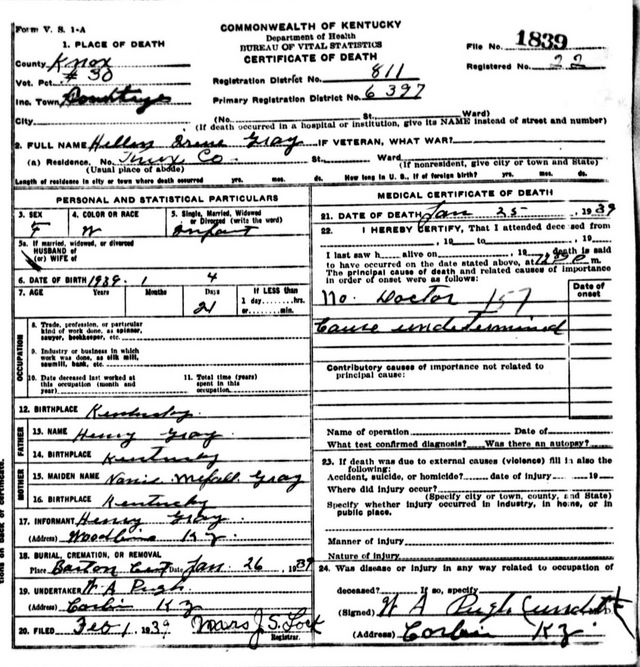 Form V. S. 1-A
COMMONWEALTH OF KENTUCKY
Department of Health
BUREAU OF VITAL STATISTICS
CERTIFICATE OF DEATH
File No. 1839
Registered No. 22
1. PLACE OF DEATH
County Knox
Vot. Pct. # 30
Inc. Town
City
Registration District No. 811
Primary Registration District No. 6397
(No. St. Ward)
(If death occurred in a hospital or institution, give its NAME instead of street and number)
2. FULL NAME Hellen Irene Gray IF VETERAN, WHAT WAR?
(a) Residence, No. Knox Co. St. Ward
(Usual place of abode) (If nonresident, give city or town and State)
Length of residence in city or town where death occurred yrs. mos. ds. How long in U. S., if of foreign birth? yrs. mos. ds.
PERSONAL AND STATISTICAL PARTICULARS
3. SEX 4. COLOR OR RACE 5. Single, Married, Widowed or Divorced (write the word)
F W Infant
5a. If married, widowed, or divorced
HUSBAND of
(or) WIFE of
6. DATE OF BIRTH 1939 1 4
7. AGE Years Months Days If LESS than
21 1 day hrs.
or min.
OCCUPATION
8. Trade, profession, or particular
kind of work done, as spinner,
sawyer, bookkeeper, etc.
9. Industry or business in which
work was done, as silk mill,
sawmill, bank, etc.
10. Date deceased last worked at
this occupation (month and
year)
11. Total time (years)
spent in this
occupation
12. BIRTHPLACE Kentucky
FATHER
13. NAME Henry Gray
14. BIRTHPLACE Kentucky
MOTHER
15. MAIDEN NAME Gray
16. BIRTHPLACE Kentucky
17. INFORMANT Henry Gray
(Address) Woodbine Ky.
18. BURIAL, CREMATION, OR REMOVAL
Place Barton Cem Date Jan. 26, 1939
19. UNDERTAKER W A Pugh
(Address) Corbin Ky
20. FILED Feb 1, 1939 Mars J. S. Lock
Registrar.
MEDICAL CERTIFICATE OF DEATH
21. DATE OF DEATH Jan 25, 1939
22. I HEREBY CERTIFY, That I attended deceased from
, 19 to , 19
I last saw h alive on , 19 death is said
to have occurred on the date stated above, at m.
The principal cause of death and related causes of importance
in order of onset were as follows:
Date of
onset
No. Doctor 157
Cause undetermined
Contributory causes of importance not related to
principal cause:
Name of operation Date of
What test confirmed diagnosis? Was there an autopsy?
23. If death was due to external causes (violence) fill in also the
following:
Accident, suicide, or homicide? date of injury 19
Where did injury occur?
(Specify city or town, county, and State)
Specify whether injury occurred in industry, in home, or in
public place.
Manner of injury
Nature of injury
24. Was disease or injury in any way related to occupation of
deceased? If so, specify
(Signed) W A Pugh
(Address) Corbin Ky.
tions on back of certificate.